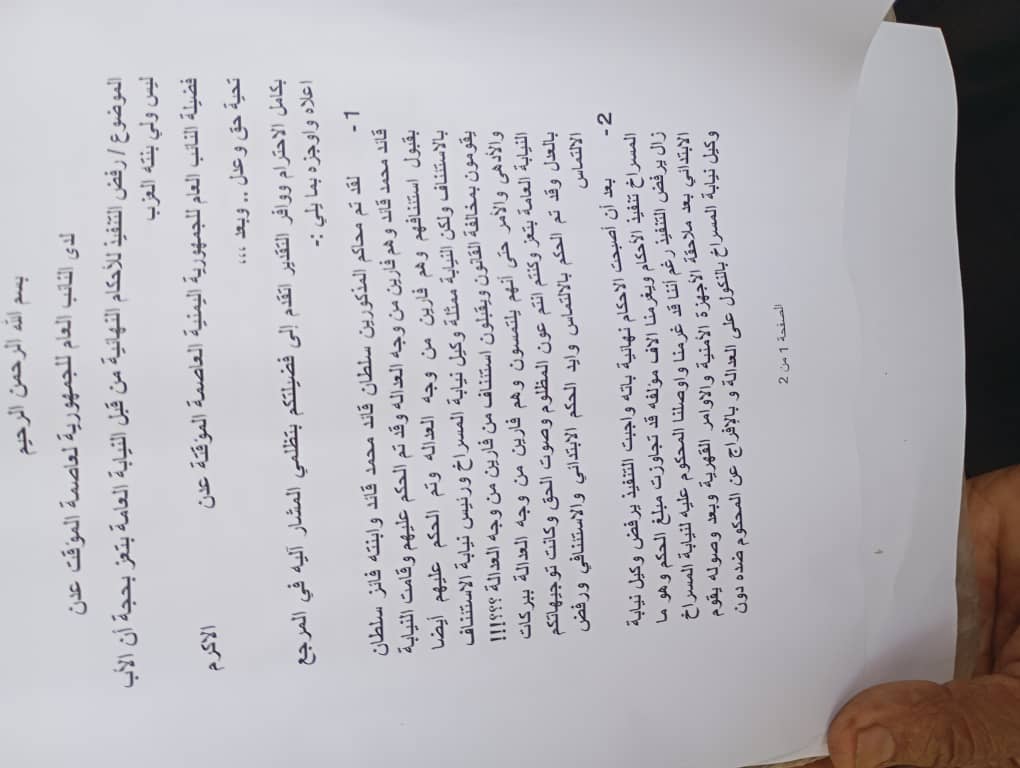 بسم الله الرحمن الرحيم
لدى النائب العام للجمهورية لعاصمة المؤقت عدن
الموضوع / رفض التنفيذ للأحكام النهائية من قبل النيابة العامة بتعز بحجة أن الأب
ليس ولي بنته العزب
فضيلة النائب العام للجمهورية اليمنية العاصمة المؤقتة عدن الاكرم
تحية حق وعدل .. وبعد ،،،
بكامل الاحترام ووافر التقدير اتقدم إلى فضيلتكم بتظلمي المشار آليه في المرجع
اعلاه واوجزه بما يلي :-
1- لقد تم محاكم المذكورين سلطان قائد محمد قائد وابنته فائز سلطان
قائد محمد قائد وهم فارين من وجه العداله وقد تم الحكم عليهم وقامت النيابة
بقبول استئنافهم وهم فارين من وجه العداله وتم الحكم عليهم أيضا
بالاستئناف ولكن النيابة ممثلة وكيل نيابة المسراخ ورئيس نيابة الاستئناف
يقومون بمخالفة القانون ويقبلون استئناف من فارين من وجه العدالة ؟؟؟!!!
والأدهى والأمر حتى أنهم يلتمسون وهم فارين من وجه العدالة ببركات
النيابة العامة بتعز وكنتم انتم عون المظلوم وصوت الحق وكانت توجيهاتكم
بالعدل وقد تم الحكم بالالتماس وايد الحكم الابتدائي والاستئنافي ورفض
الالتماس
2- بعد أن أصبحت الاحكام نهائية باته واجبت التنفيذ يرفض وكيل نيابة
المسراخ تنفيذ الأحكام ويغرمنا الاف مؤلفه قد تجاوزت مبلغ الحكم وهو ما
زال يرفض التنفيذ رغم أننا قد غرمنا واوصلنا المحكوم عليه لنيابة المسراخ
الابتدائي بعد ملاحقة الأجهزة الأمنية والاوامر القهرية وبعد وصوله يقوم
وكيل نيابة المسراخ بالنكول على العدالة و بالإفراج عن المحكوم ضده دون
الصفحة 1 من 2